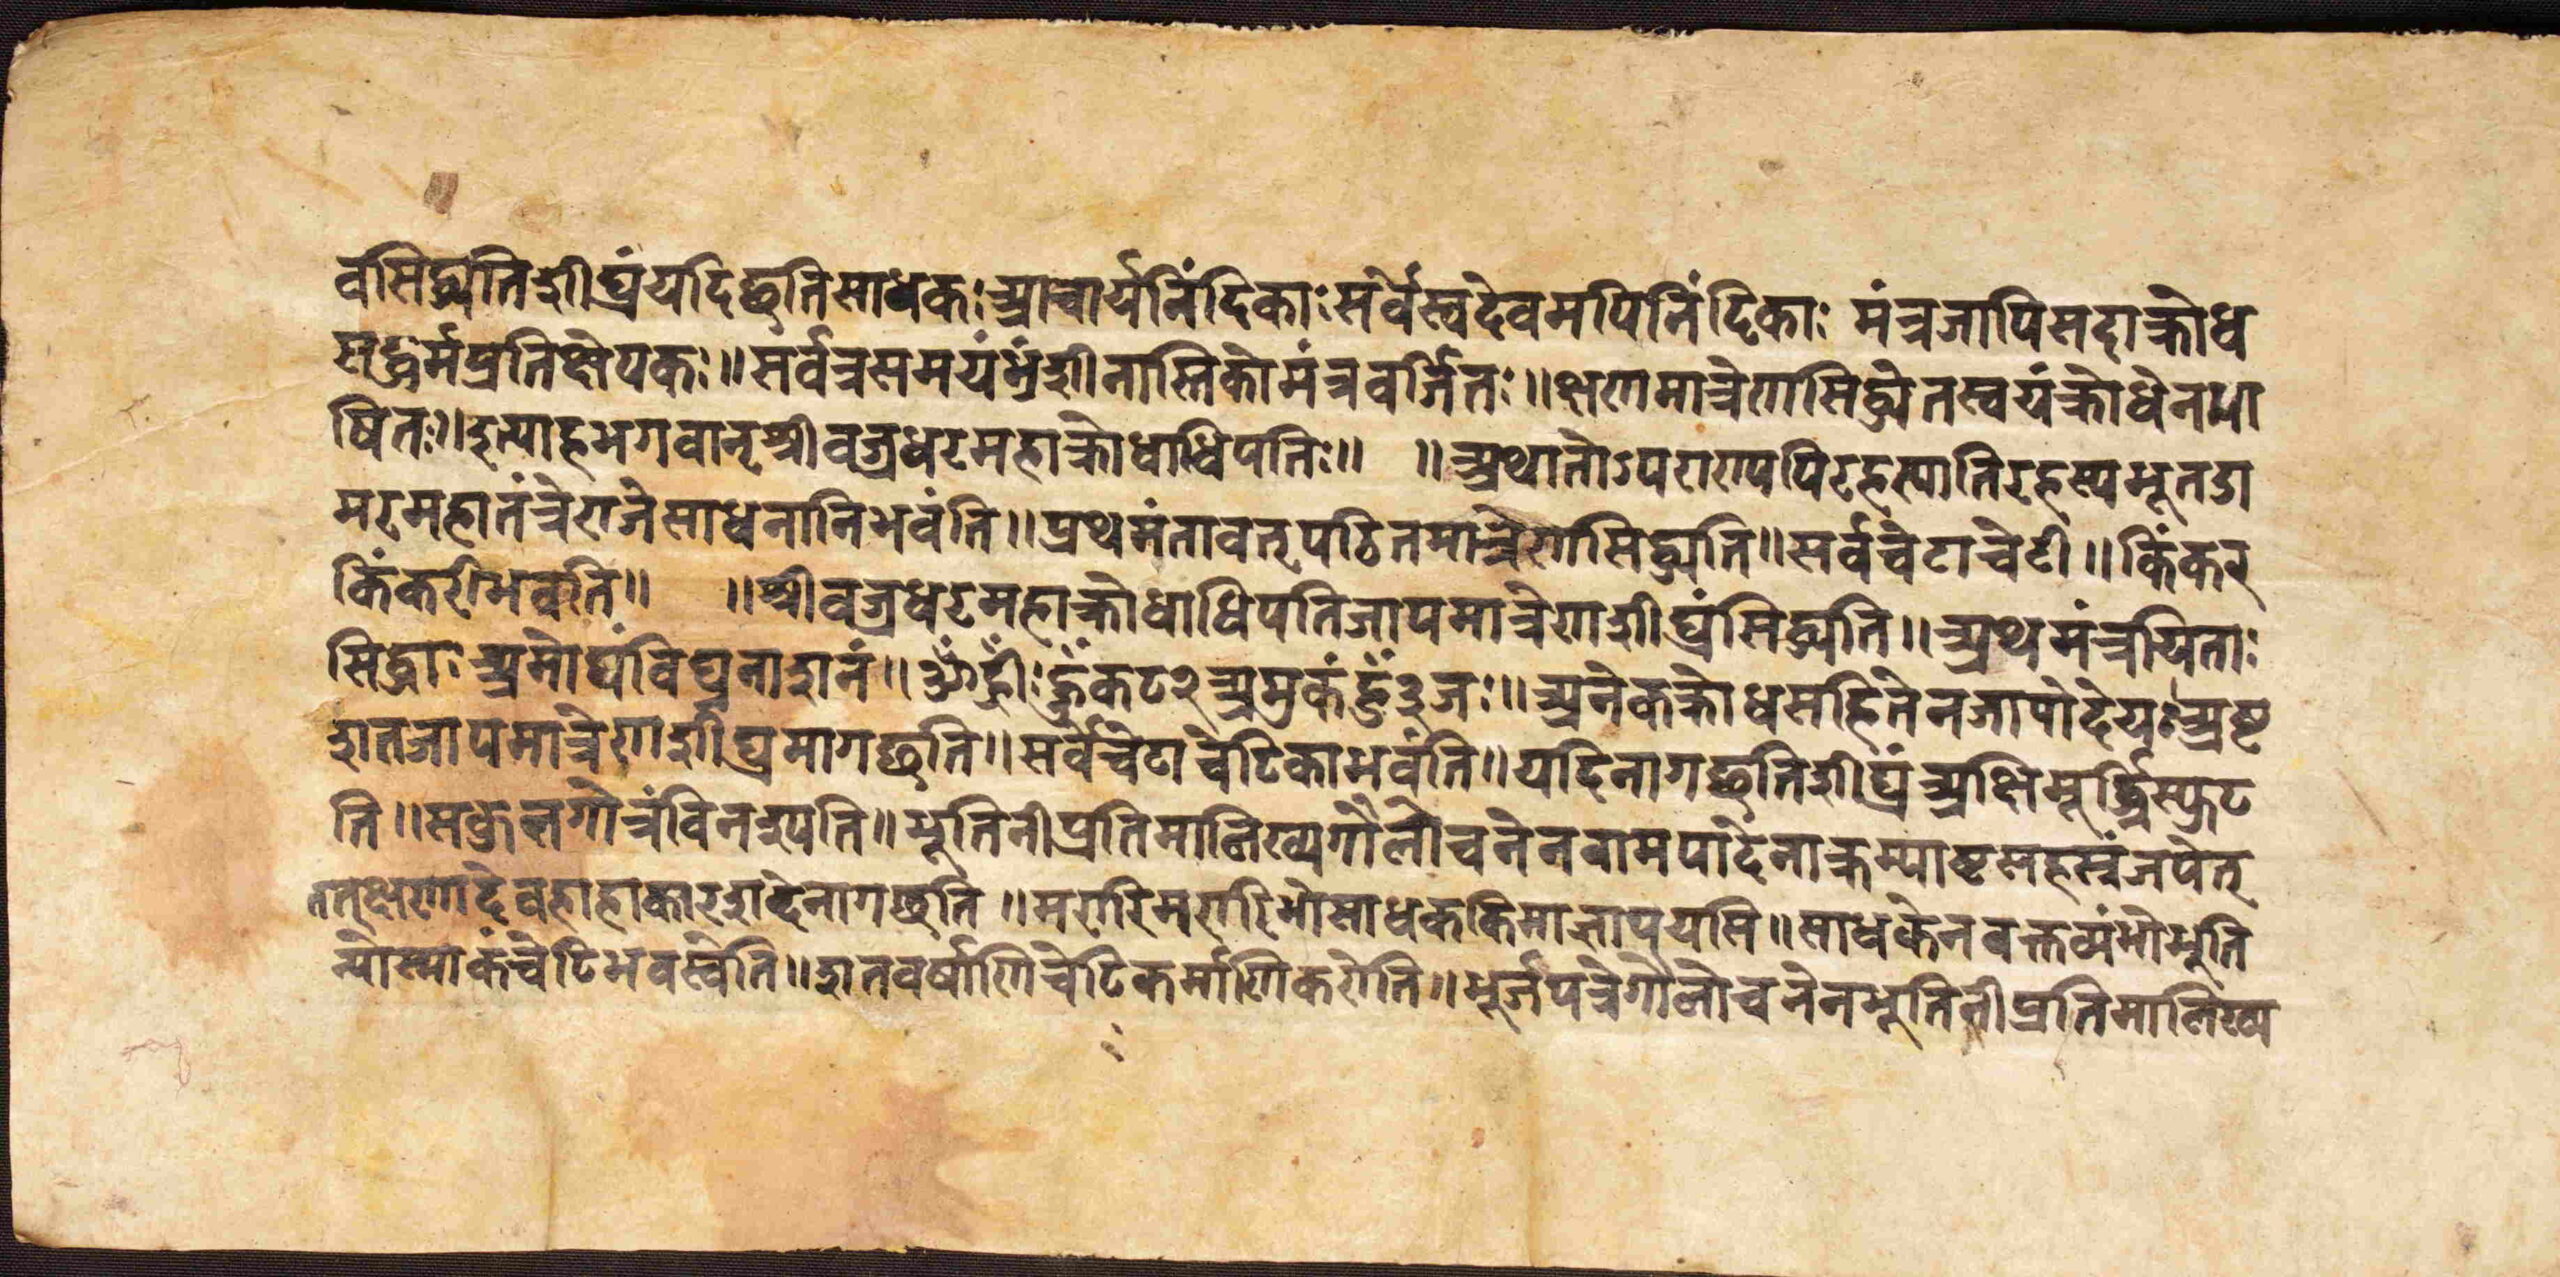 वसिद्ध्यतिशीघ्रंयदिछतिसाधकः आचार्यनिंदिकाः सर्वेस्वदेवमपिनिंदिकाः मंत्रजापिसदाक्रोध
सद्धर्मप्रतिक्षेपकः ॥ सर्वत्रसमयंभ्रंशीनास्तिकोमंत्रवर्जितः ॥ क्षणमात्रेणसिद्ध्येतस्वयंक्रोधेनभा
षितः ॥ इत्याहभगवान्श्रीवज्रधरमहाक्रोधाधिपतिः ॥ ॥ अथातोऽपराण्यपिरहस्यातिरहस्यभूतडा
मरमहातंत्रेराजेसाधनानिभवंति ॥ प्रथमंतावत्पठितमात्रेणसिद्ध्यति ॥ सर्वचेटाचेटी ॥ किंकर
किंकरीभवति ॥ ॥ श्रीवज्रधरमहाक्रोधाधिपतिजापमात्रेणशीघ्रंसिद्ध्यति ॥ अथमंत्रयिताः
सिद्धाः अमोघंविघ्ननाशनं ॥ ॐह्रीः हूँकट२ अमुकं हूँ ३ जः ॥ अनेकक्रोधसहितेनजापोदेयः अष्ट
शतजापमात्रेणशीघ्रमागछति ॥ सर्वेचेटाचेटिकाभवंति ॥ यदिनागछतिशीघ्रंअक्षिमूर्द्ध्निस्फुट
ति ॥ सकुलगोत्रंविनश्यति ॥ भूतिनीप्रतिमालिख्यगोलोचनेनवामपादेनाक्रम्याष्टसहस्रंजपेत्
तत्क्षणादेवहाहाकारशब्देनागछति ॥ मरारिमरारिभोसाधककिमाज्ञापयसि ॥ साधकेनवक्तव्यंभोभूति
न्योस्माकंचेटिभवस्वेति ॥ शतवर्षाणिचेटिकर्माणिकरोति ॥ भूर्जपत्रेगोलोचनेनभूतिनीप्रतिमालिख्य